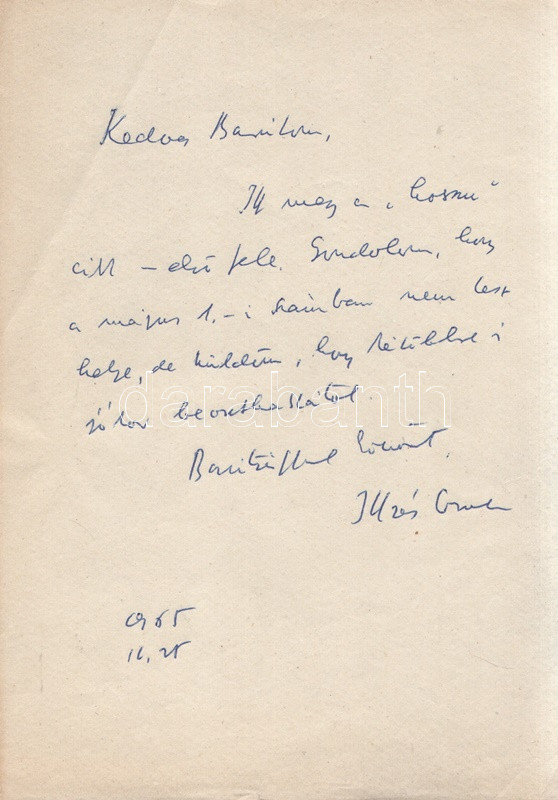 Kedves Barátom,
Itt megy a „hosszu"
cikk – első fele. Gondolom, hogy
a május 1.-i számban nem lesz
helye, de küldöm, hogy
jókor beoszthassátok.
Barátsággal köszönt,
Illyés Gyula
1965
darabanth